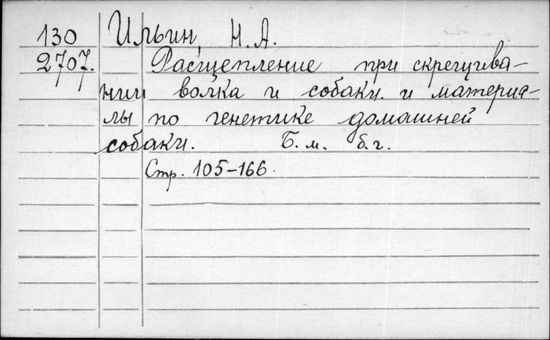 130 Ильин Н.А.
2707. Расщепление при скрещива-
нии волка и собаки и материа-
лы по генетике домашней
собаки. Б.м. б.г.
Стр. 105-166.